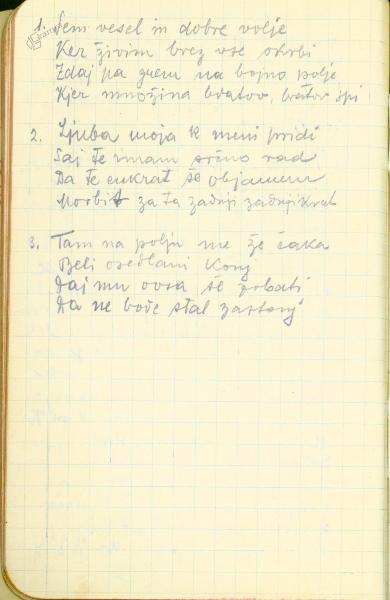 1. Sem vesel in dobre volje
Ker živim brez vse skrbi
Zdaj pa grem na bojno polje
Kjer množina bratov, bratov spi
2. Ljuba moja k meni pridi
Saj te imam srčno rad
Da te enkrat še objamem
Morbit za ta zadnji zadnjikrat
3. Tam na polju me že čaka
Beli osedlani konj
Daj mu ovsa še zobati
Da ne bode stal zastonj